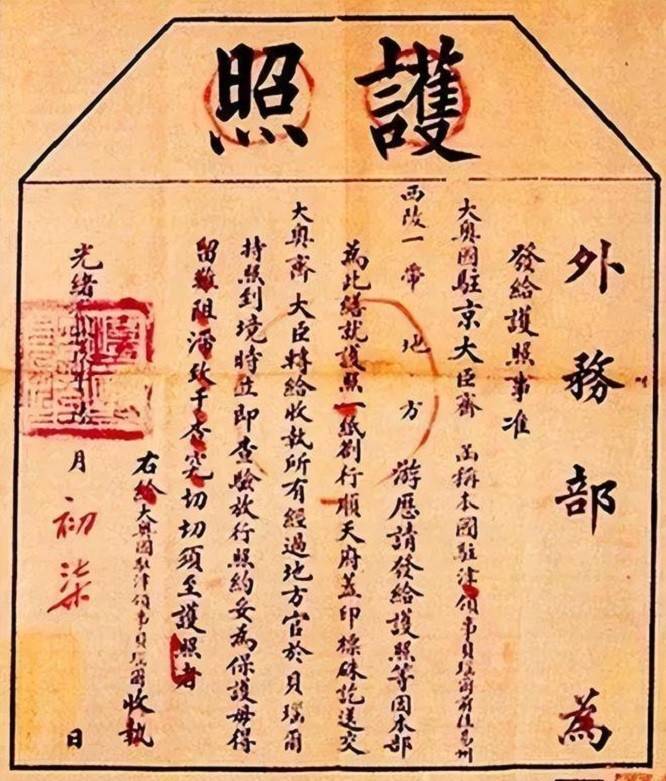 護照
外務部為
發給護照事准
大奧國駐京大臣齊 函稱本國駐津領事貝瑙爾前往易州
西陵一帶地方 游歷請發給護照等因本部
為此繕就護照一紙劄行順天府蓋印標硃訖送交
大奧齊大臣轉給收執所有經過地方官於貝瑙爾
持照到境時立即查驗放行照約妥為保護毋得
留難阻滯致干查究切切須至護照者
右給大奧國駐津領事貝瑙爾收執
光緒 年 月初柒日